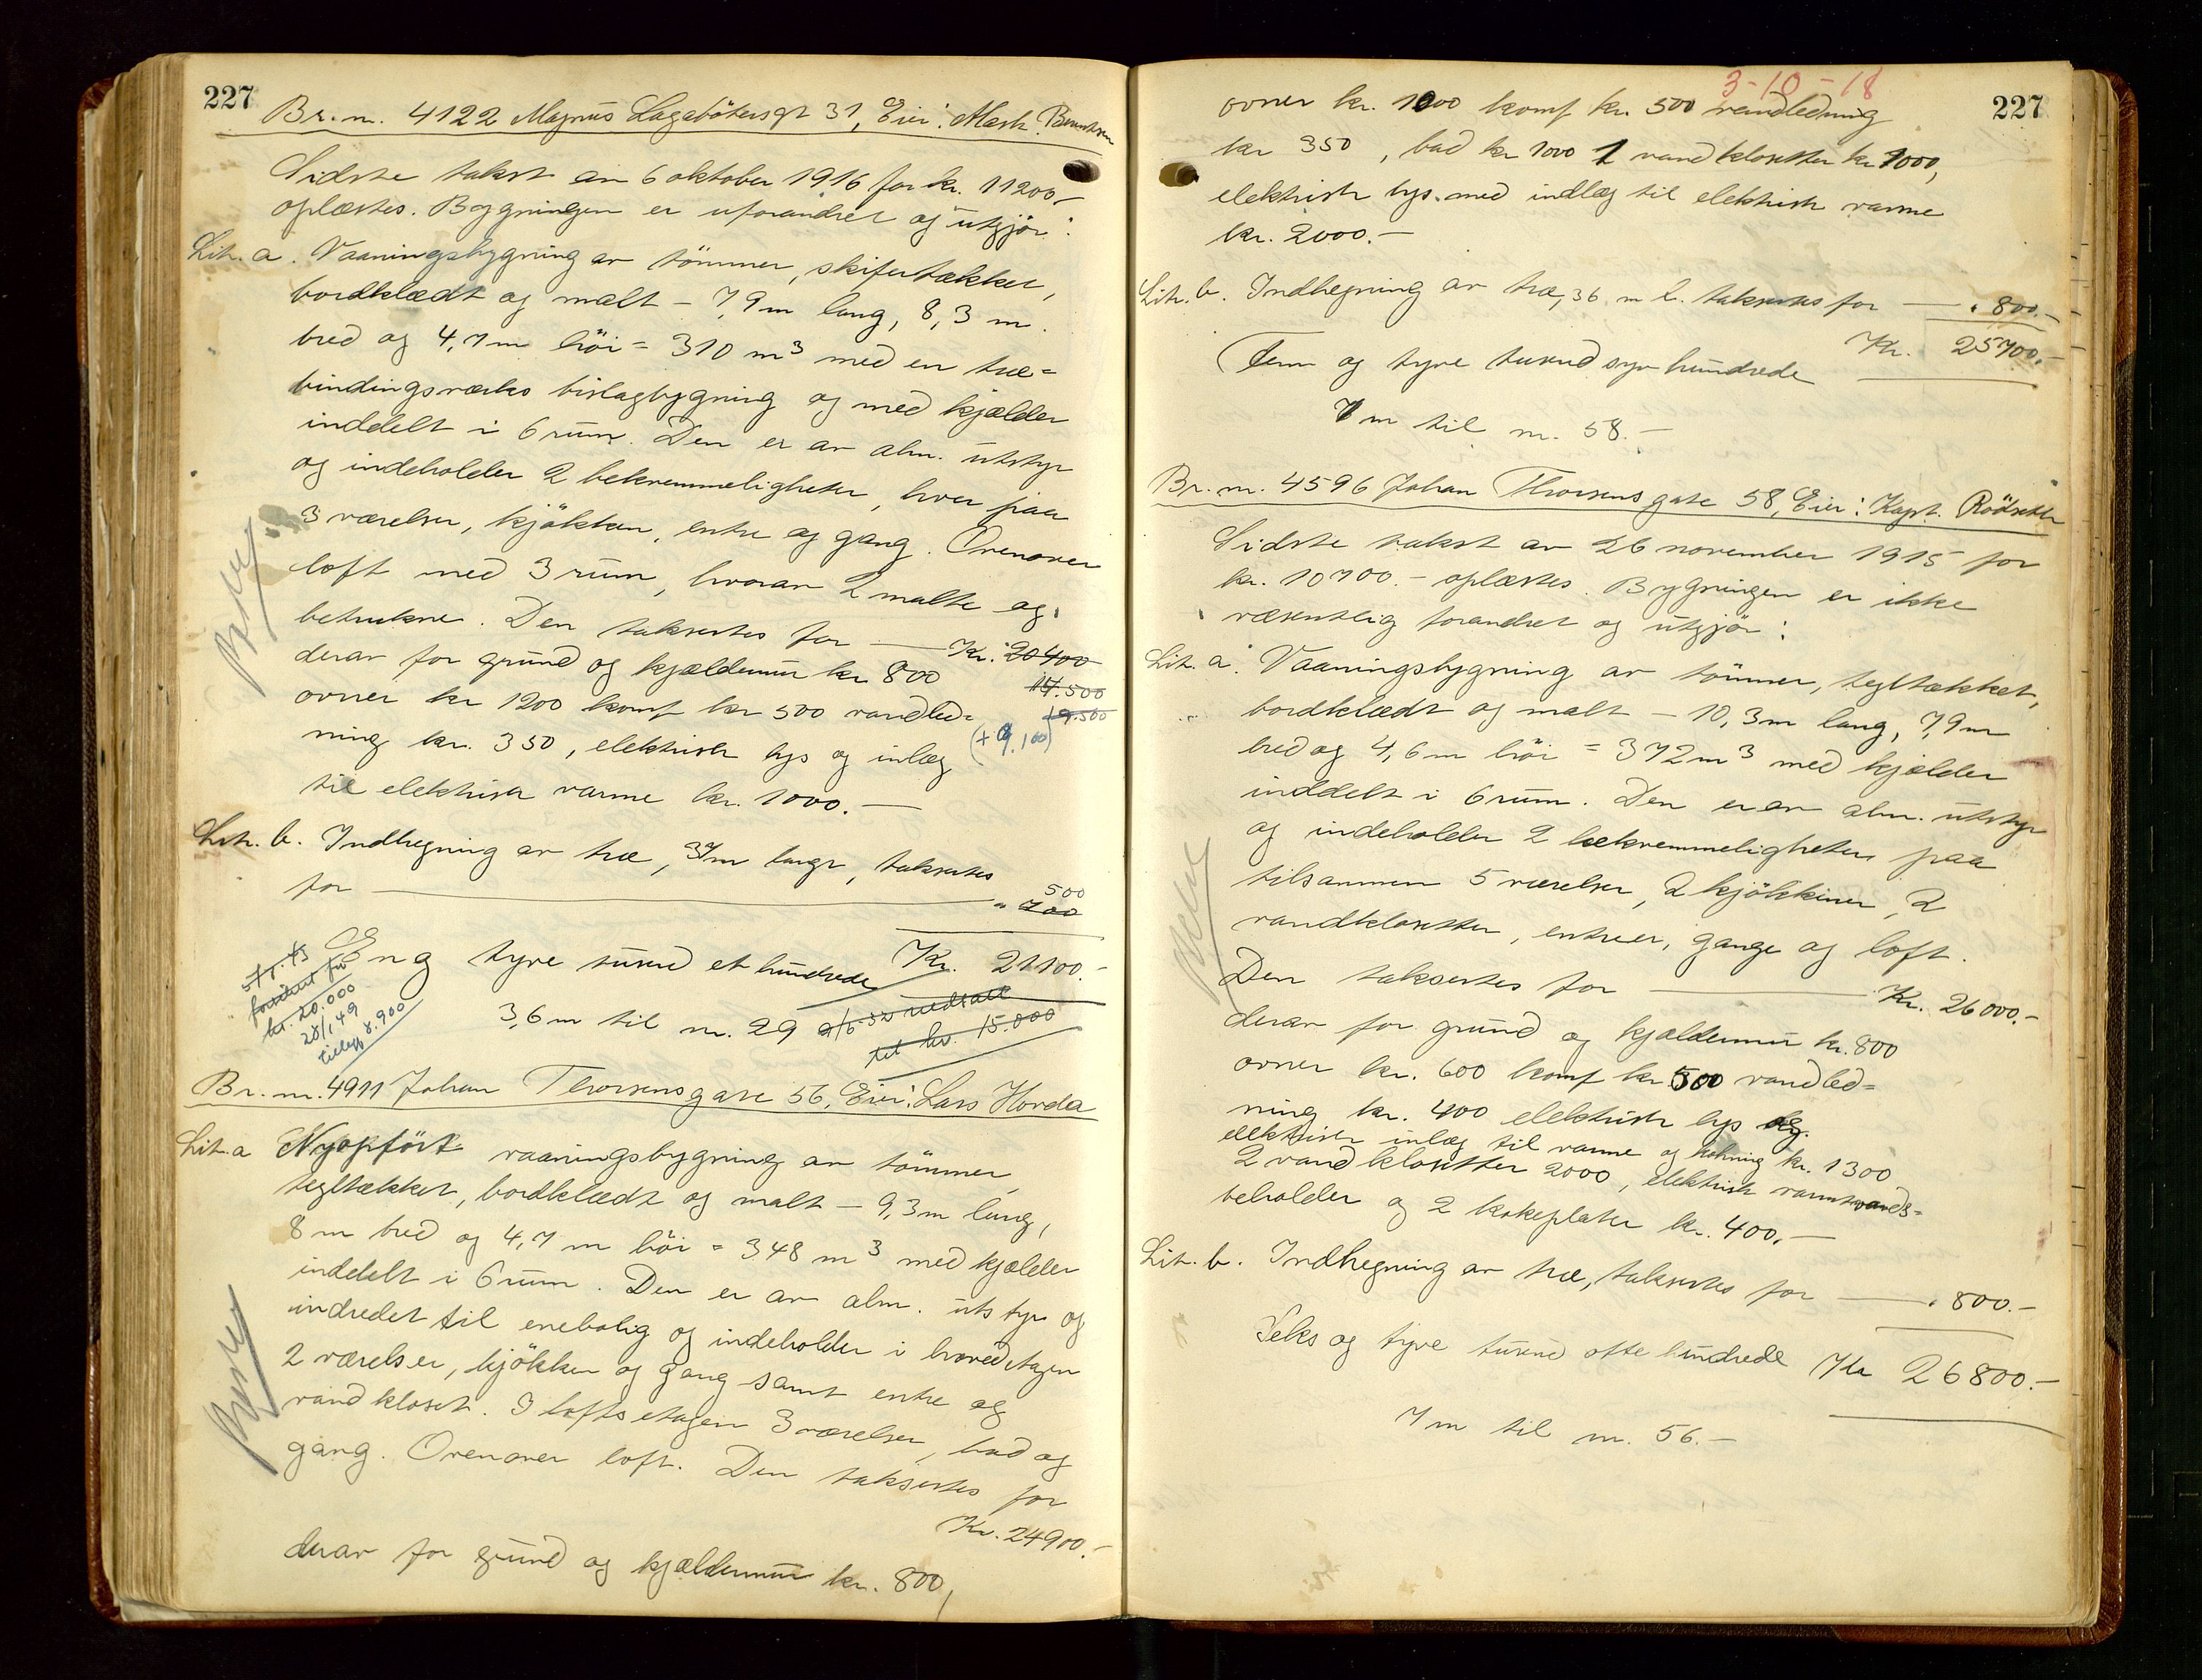 227
Br. nr. 4122 Magnus Lagabötersgt 31, Eier: Mask. Berentsen
Sidste takst av 6 oktober 1916 for kr. 11200,-
oplæstes. Bygningen er uforandret og utgjör:
Lit. a. Vaaningsbygning av tömmer, skifertækket,
bordklædt og malt - 7,9 m lang, 8,3 m.
bred og 4,7 m höi = 310 m3 med en træ=
bindingsverks bislagbygning og med kjælder
inddelt i 6 rum. Den er av alm. utstyr
og indeholder 2 bekvemmeligheter, hver paa
3 værelser, kjökken, entre og gang. Ovenover
loft med 3 rum, hvorav 2 malte og
betrukne. Den taksertes for — Kr. 20400
derav for grund og kjældermur kr 800
17.500
ovner kr 1200 komf kr 500 vandled=
19.500
ning kr. 350, elektrisk lys og inlæg
(+ 9.100)
til elektrisk varme kr. 1000.—
Lit. b. Indhegning av træ, 37m lang, taksertes
for — " 700
500
Eng tyve tusend et hundrede Kr. 21100.-
3,6 m til nr. 29
2/5-32 nedsatt
til kr. 15.000
5/9.45
forsikret for
kr. 20.000
28/1 49
tillegg 8.900
Br. nr. 4911 Johan Thorsens gate 56, Eier: Lars Horda
Lit. a Nyopfört vaaningsbygning av tömmer,
tegltækket, bordklædt og malt - 9,3m lang,
8 m bred og 4,7 m höi = 348 m3 med kjælder
inddelt i 6 rum. Den er av alm. utstyr og
indredet til enebolig og indeholder i hovedetagen
2 værelser, kjökken og gang samt entre og
vandkloset. I loftsetagen 3 værelser, bad og
gang. Ovenover loft. Den taksertes for
Kr. 24900.-
derav for grund og kjældermur kr. 800,
3-10-18
227
ovner kr. 1000 komf kr. 500 vandledning
kr 350, bad kr 1000 1 vandklosetter kr 1000,
elektrisk lys med indlæg til elektrisk varme
kr. 2000.-
Lit. b. Indhegning av træ, 36 m l. taksertes for — " 800.-
Kr. 25700.-
Fem og tyve tusend syv hundrede
7 m til nr. 58.-
Br. nr. 4596 Johan Thorsens gate 58, Eier: Kapt. Rödseth
Sidste takst av 26 november 1915 for
kr. 10700.- oplæstes. Bygningen er ikke
væsentlig forandret og utgjör:
Lit. a. Vaaningsbygning av tömmer, tegltækket,
bordklædt og malt - 10,3m lang, 7,9m
bred og 4,6m höi = 372m3 med kjælder
inddelt i 6 rum. Den er av alm. utstyr
og indeholder 2 bekvemmeligheter paa
tilsammen 5 værelser, 2 kjökkener, 2
vandklosetter, entreer, gange og loft.
Den taksertes for — Kr. 26000.-
derav for grund og kjældermur kr. 800
ovner kr. 600 komf kr. 500 vandled=
ning kr. 400 elektrisk lys og
elektrisk inlæg til varme og kokning kr. 1300
2 vandklosetter 2000, elektrisk varmtvands=
beholder og 2 kokeplater kr. 400.-
Lit. b. Indhegning av træ, taksertes for — " 800.-
Seks og tyve tusend otte hundrede Kr 26800.-
7 m til nr. 56.-